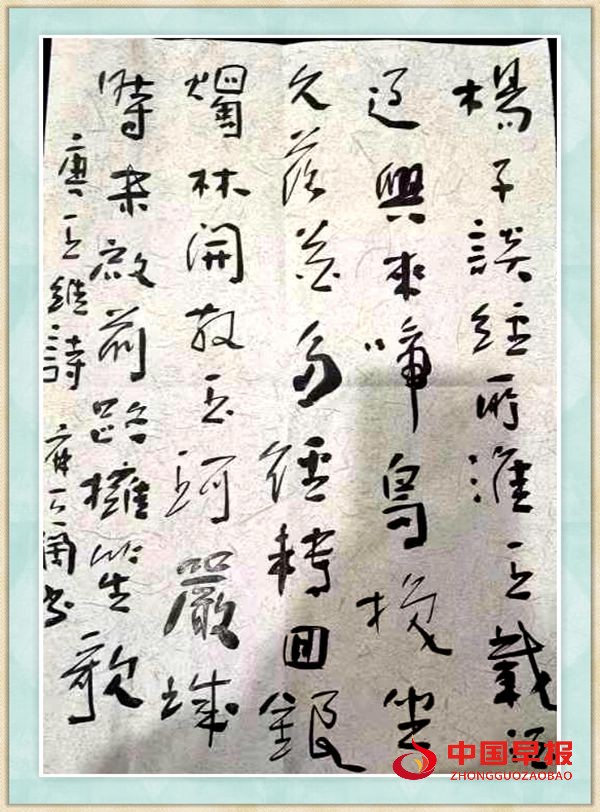 楊子談經所淮王載酒
過興來啼鳥換坐
久落花多徑轉回銀
燭林開散玉珂嚴城
時未啟前路擁笙歌
唐王維詩 書
中国早报
ZHONGGUOZAOBAO